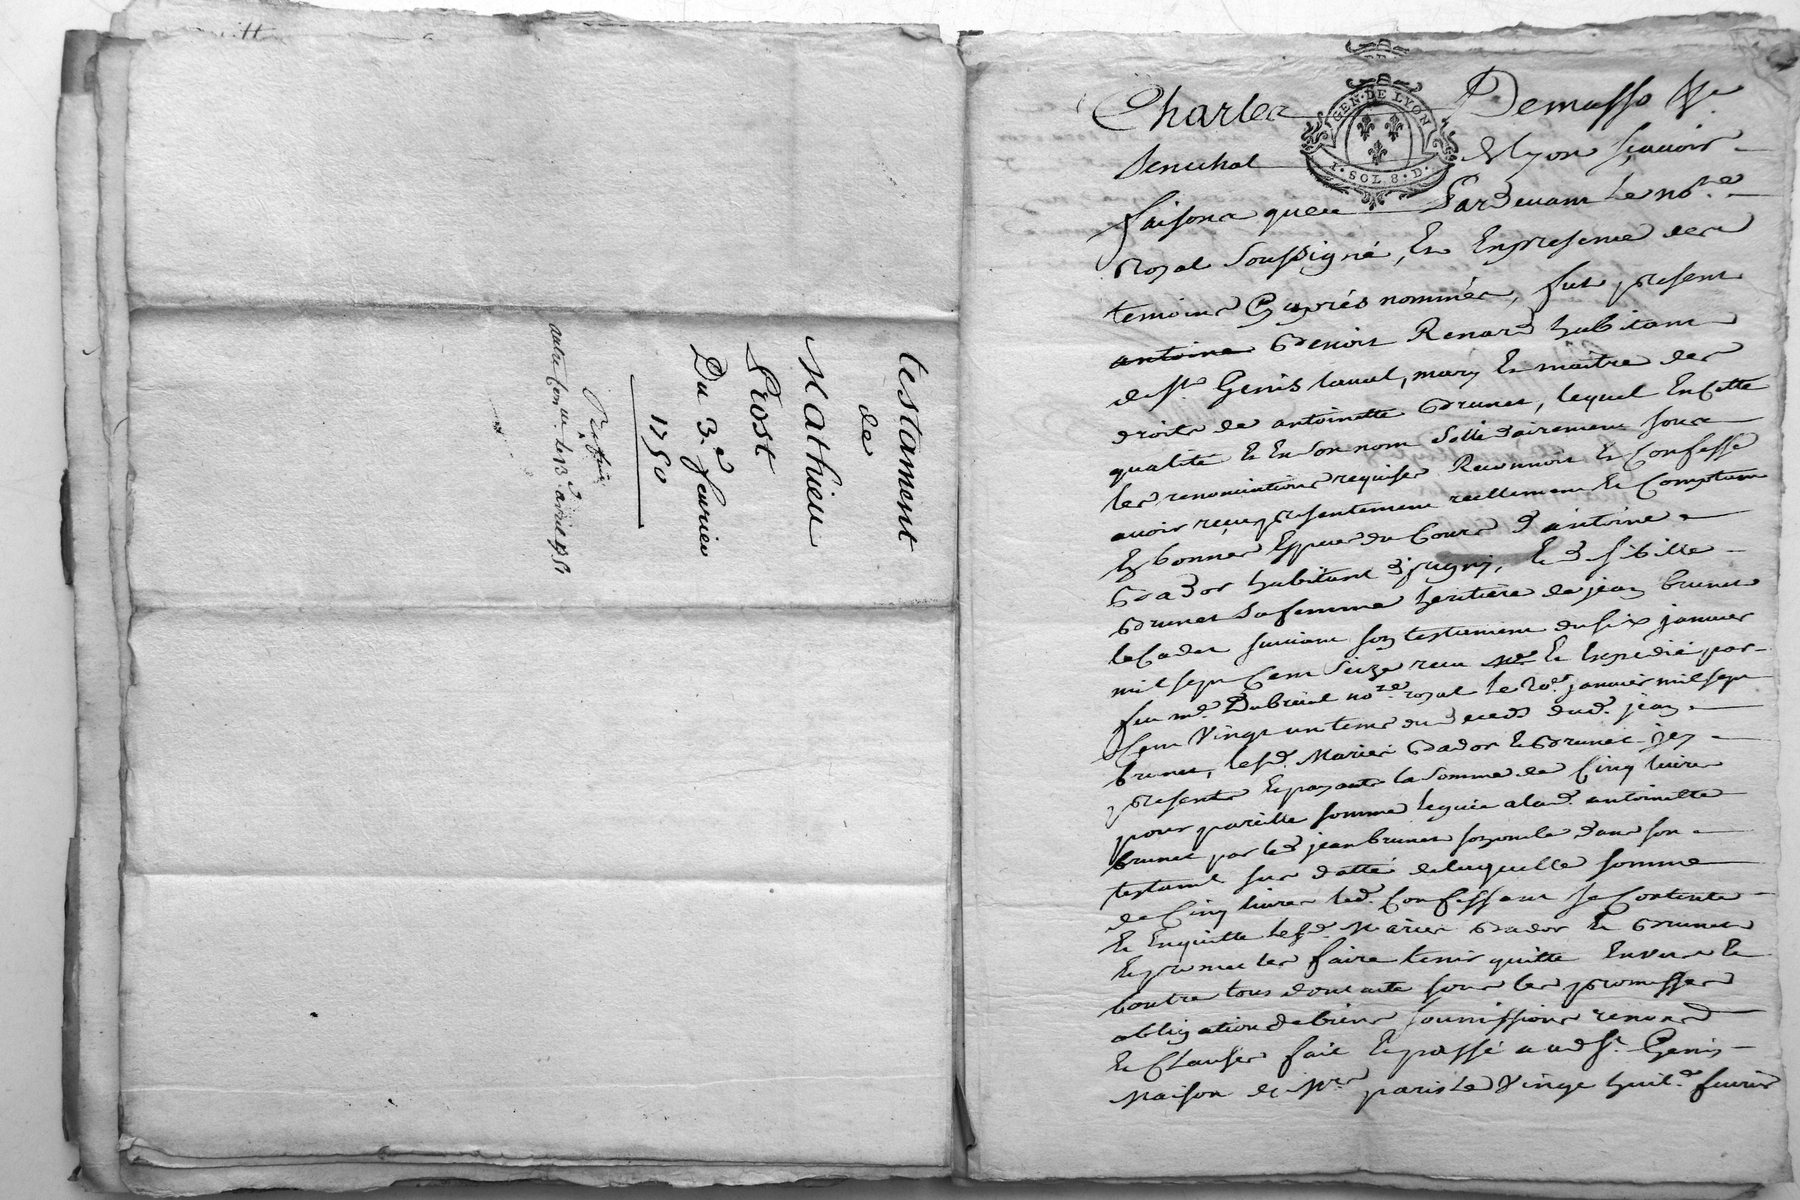 testament
de
Mathieu
Prost
Du 3.e feurier
1750
autre
le 13.e avril
GEN·DE LYON
SOL 8·D·
Charles Demasso
Senechal de lyon sçauoir
faisons que Pardeuant le no.re
Royal Soussigné, Et En presence des
temoins Cy apres nommés, fut present
antoine Benoist Renard habitant
de S.t Genis laual, mary Et maitre des
droits de antoinette Brunet, lequel En cette
qualité Et En son nom Sollidairement sous
les renonciations requises Reconnoit Et Confesse
auoir reçu presentement reellement Et Comptant
En bonnes Especes du Cours d'antoine
Bador habitant d'jrigny, Et d.e sibille
Brunet Sa femme heritiere de jean brunet
le Cadet suiuant son testament du six januier
mil sept Cent Seize receu Et Expedié par
feu m.e Dubreüil no.re royal le januier mil sept
Cent Vingt un tems du deceds dud. jean
brunet, lesd. Mariés Bador Et Brunet jcy
presents Et payants la Somme de Cinq liures
pour pareille somme leguée a lad. antoinette
brunet par led. jean brunet son oncle dans son
testam.t sus datté de laquelle somme
de Cinq liures led. Confessant se Contente
Et En quitte lesd. Mariés Bador Et Brunet
Et promet les faire tenir quitte Enuers Et
Contre tous dont acte sous les promesses
obligation de biens soumissions renon.
Et Clauses fait Et passé aud. S.t Genis
Maison de M.re paris le Vingt huit.e feurier